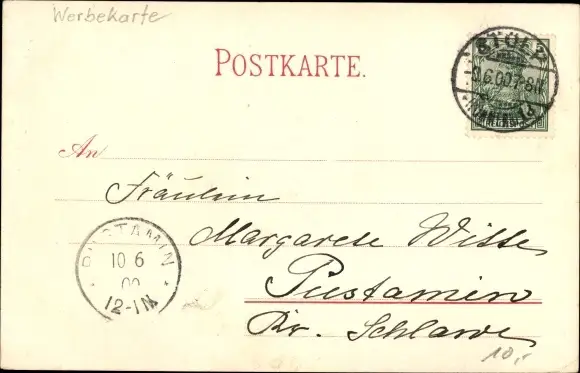 Werbekarte
POSTKARTE.
STOLP
9.6.00.7-8N.
An
Fräulein
Margarete Witte
Pustamin
Kr. Schlawe
PUSTAMIN
10 6
00
12-1N
10,-